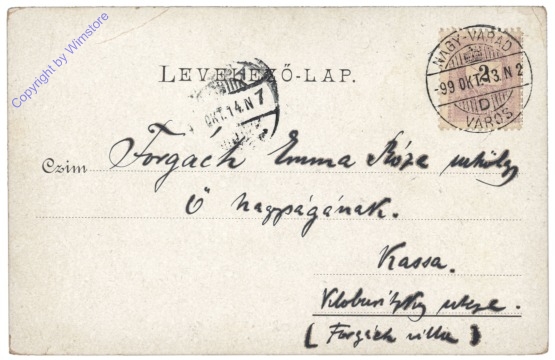 Copyright by Wimstore
NAGY-VÁRAD
-99 OKT. 13. N 2
D
VÁROS
2
LEVELEZŐ-LAP.
OKT. 14. N 7
Czim Forgách Emma Róza
Ő nagyságának.
Kassa.
utcza.
(Forgách villa)